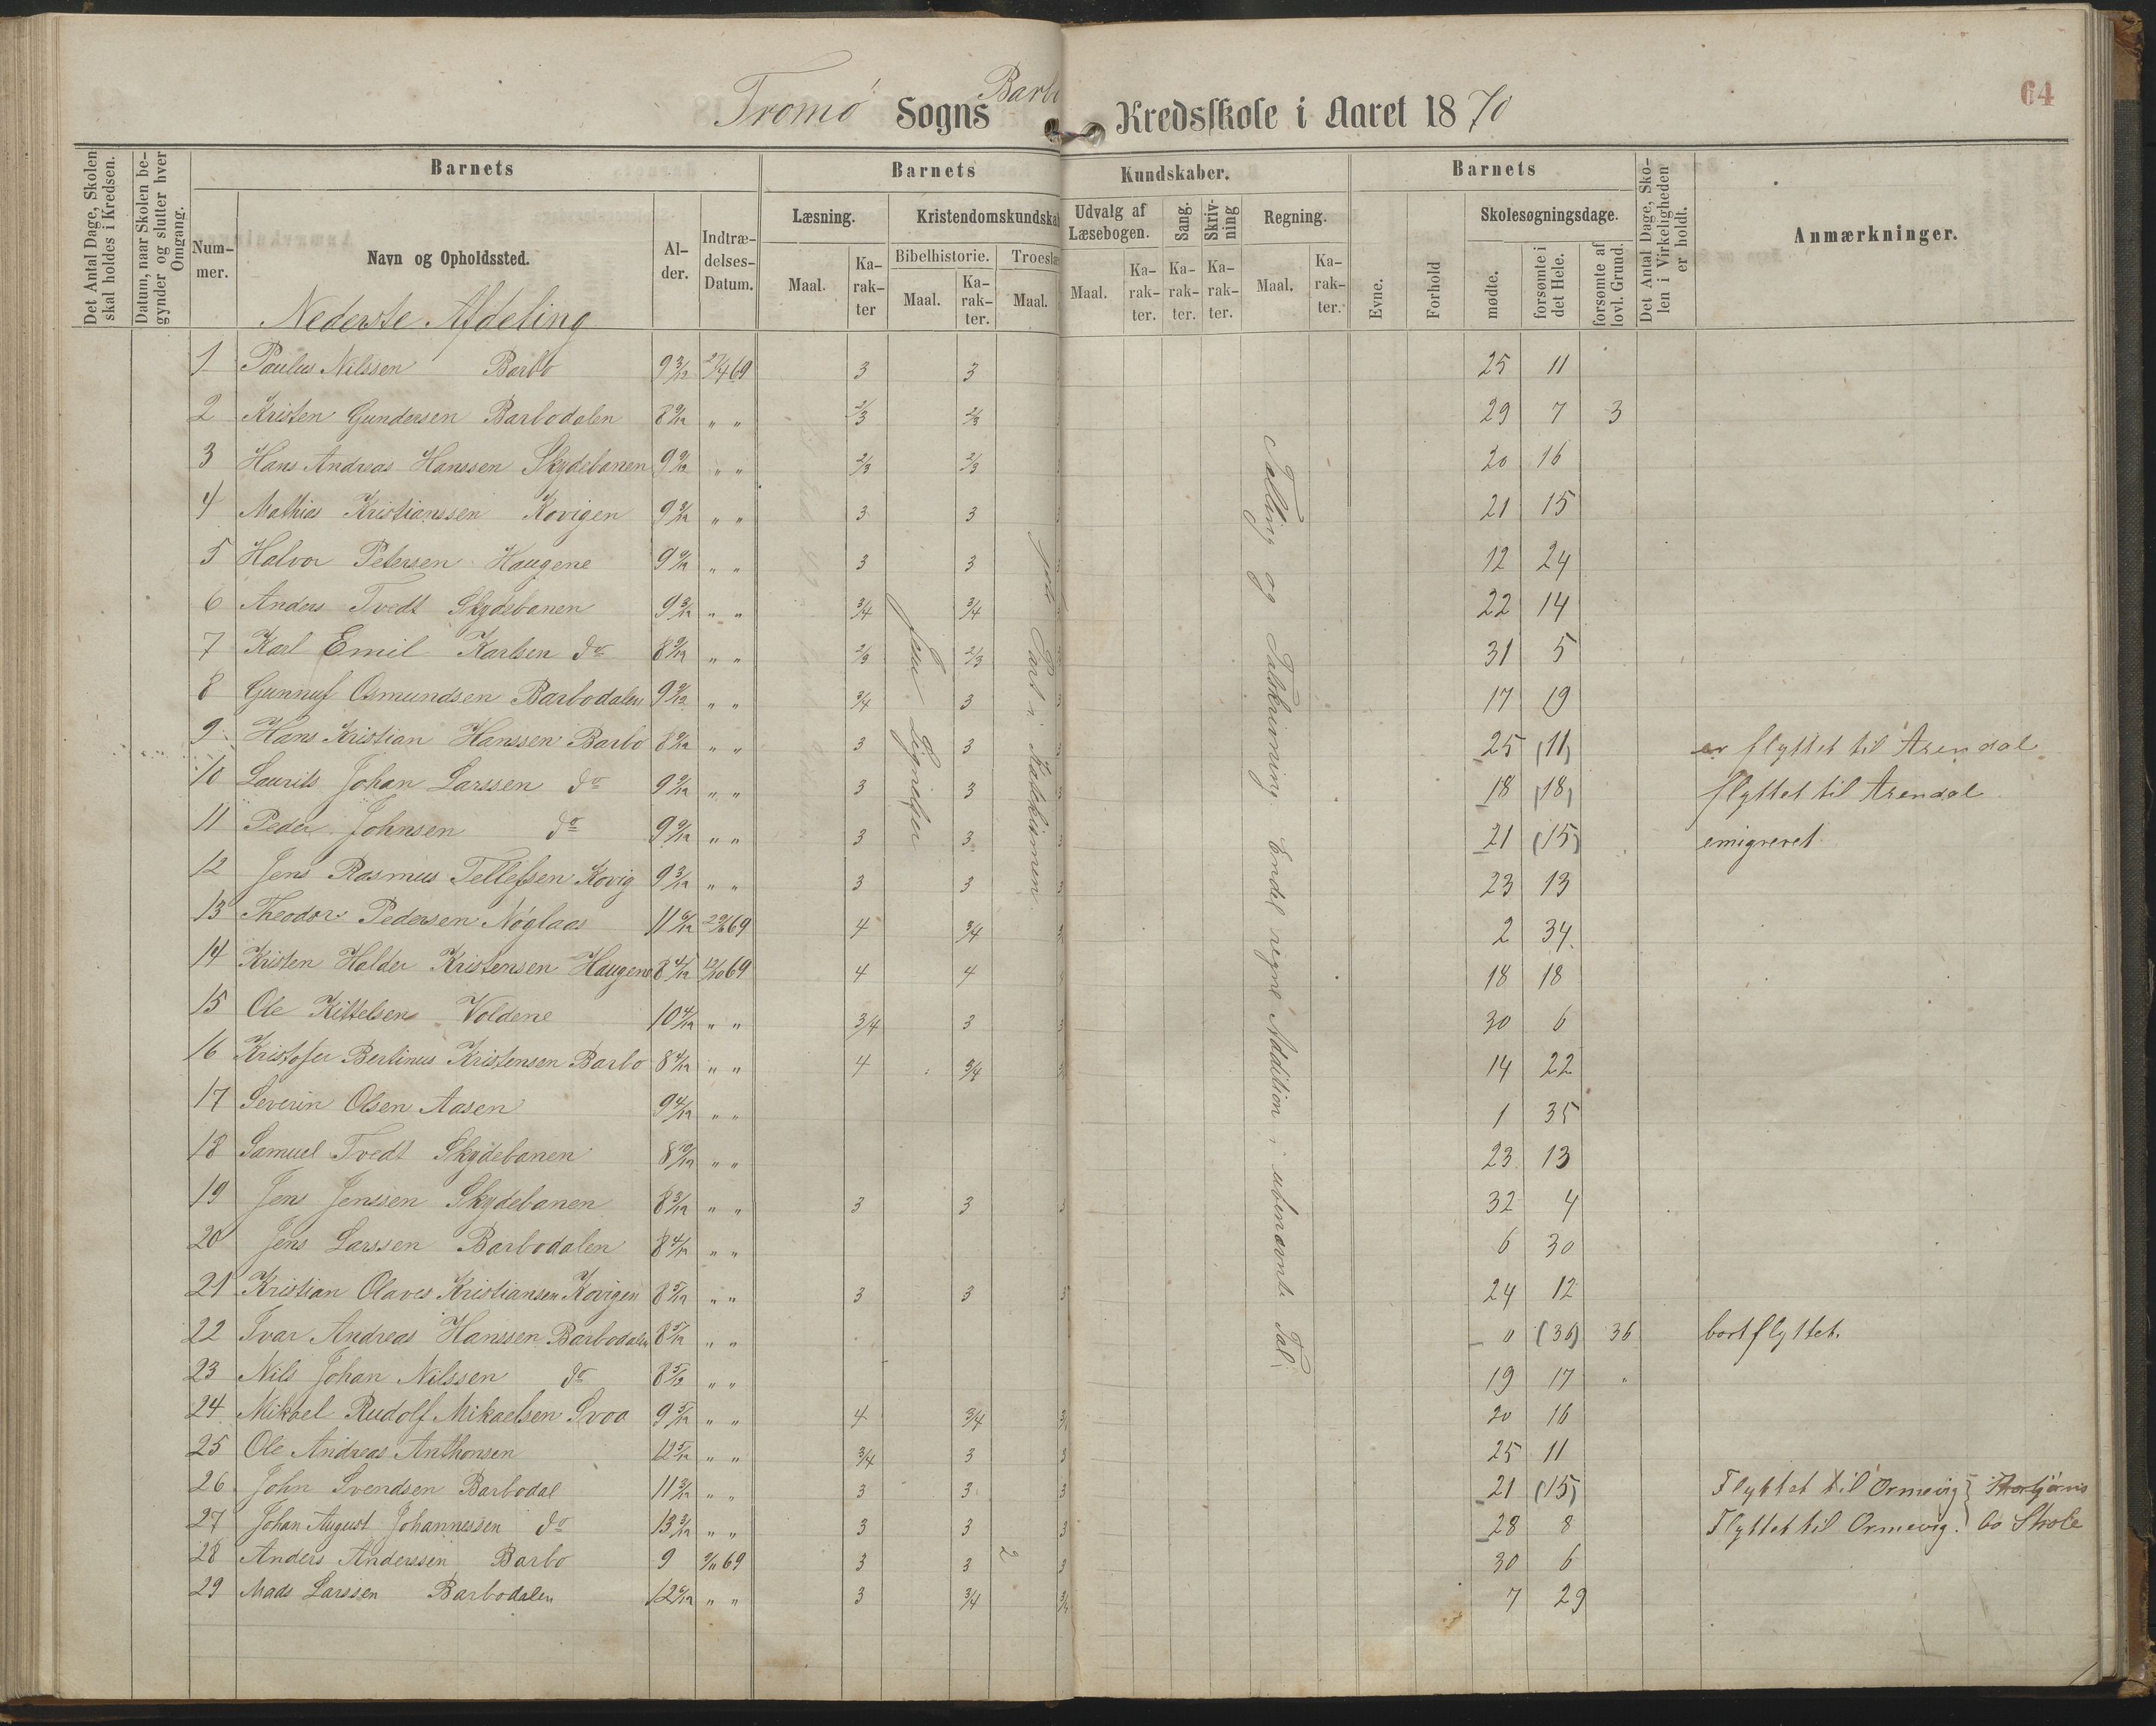 Tromø Sogns Barbo Kredsskole i Aaret 1870
64
Det Antal Dage, Skolen skal holdes i Kredsen.
Datum, naar Skolen begynder og slutter hver Omgang.
Barnets
Nummer.
Navn og Opholdssted.
Alder.
Indtrædelses-Datum.
Barnets Kundskaber.
Læsning.
Maal.
Karakter
Kristendomskundskab
Bibelhistorie.
Maal.
Karakter.
Troeslære
Maal.
Udvalg af Læsebogen.
Maal.
Karakter.
Sang.
Karakter.
Skrivning
Karakter.
Regning.
Maal.
Karakter.
Barnets
Evne.
Forhold
Skolesøgningsdage.
mødte.
forsømte i det Hele.
forsømte af lovl. Grund.
Det Antal Dage, Skolen i Virkeligheden er holdt.
Anmærkninger.
Nederste Afdeling
1 Paulus Nilssen Barbo 9 3/12 27/4 69 3 3 25 11
2 Kristen Gundersen Barbodalen 8 9/12 " " 2/3 2/3 29 7 3
3 Hans Andreas Hanssen Skydebanen 9 9/12 " " 2/3 2/3 20 16
4 Mathias Kristianssen Kovigen 9 3/12 " " 3 3 21 15
5 Halvor Petersen Haugene 9 9/12 " " 3 3 12 24
6 Anders Tvedt Skydebanen 9 3/12 " " 3/4 3/4 22 14
7 Karl Emil Karlsen do 8 9/12 " " 2/3 2/3 31 5
8 Gunnuf Osmundsen Barbodalen 9 9/12 " " 3/4 3 17 19
9 Hans Kristian Hanssen Barbo 8 9/12 " " 3 3 25 (11) er flyttet til Arendal
10 Laurits Johan Larssen do 9 9/12 " " 3 3 18 (18) flyttet til Arendal
11 Peder Johnsen do 9 9/12 " " 3 3 21 (15) emigreret
12 Jens Rasmus Tellefsen Kovig 9 3/12 " " 3 3 23 13
13 Theodor Pedersen Nøglaas 11 6/12 69 4 3/4 2 34
14 Kristen Halder Kristensen Haugene 8 4/12 12/10 69 4 4 18 18
15 Ole Kittelsen Voldene 10 4/12 " " 3/4 3 30 6
16 Kristofer Bertinus Kristensen Barbo 8 4/12 " " 4 3/4 14 22
17 Severin Olsen Aasen 9 4/12 " " 1 35
18 Samuel Tvedt Skydebanen 8 10/12 " " 23 13
19 Jens Jenssen Skydebanen 8 3/12 " " 3 3 32 4
20 Jens Larssen Barbodalen 8 4/12 " " 6 30
21 Kristian Olaves Kristiansen Kovigen 8 5/12 " " 3 3 24 12
22 Ivar Andreas Hanssen Barbodalen 8 5/12 " " 0 (36) 36 bortflyttet.
23 Nils Johan Nilssen do 8 5/12 " " 19 17
24 Mikael Rudolf Mikaelsen Svoa 9 5/12 " " 4 3/4 20 16
25 Ole Andreas Anthonsen 12 5/12 " " 3/4 3 25 11
26 John Svendsen Barbodal 11 3/12 " " 3 3 21 (15) Flyttet til Ormevig
27 Johan August Johannessen do 13 3/12 " " 3 3 28 8 Flyttet til Ormevig. Skole
28 Anders Anderssen Barbo 9 69 3 3 2 30 6
29 Mads Larssen Barbodalen 12 6/12 " " 3 3/4 7 29
Jesu Lignelser
Part i Katekismen
Tælling og Talskrivning Endel regne Addition i ubenævnte Tal.